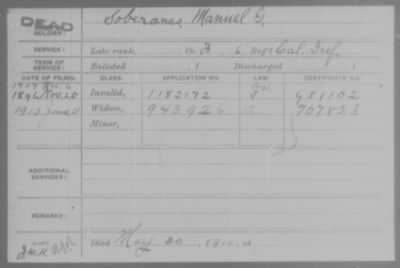 DEAD
SOLDIER: Soberanes, Manuel G.
SERVICE: Late rank, Co. F, 6 Reg't Cal. Inf.
TERM OF SERVICE: Enlisted , 1 Discharged , 1
DATE OF FILING. CLASS. APPLICATION NO. LAW. CERTIFICATE NO.
1896 Nov. 25 Invalid, 1182172 981102
1912 June 11 Widow, 943926 707823
Minor,
ADDITIONAL SERVICES:
REMARKS:
Died May 20, 1912, at